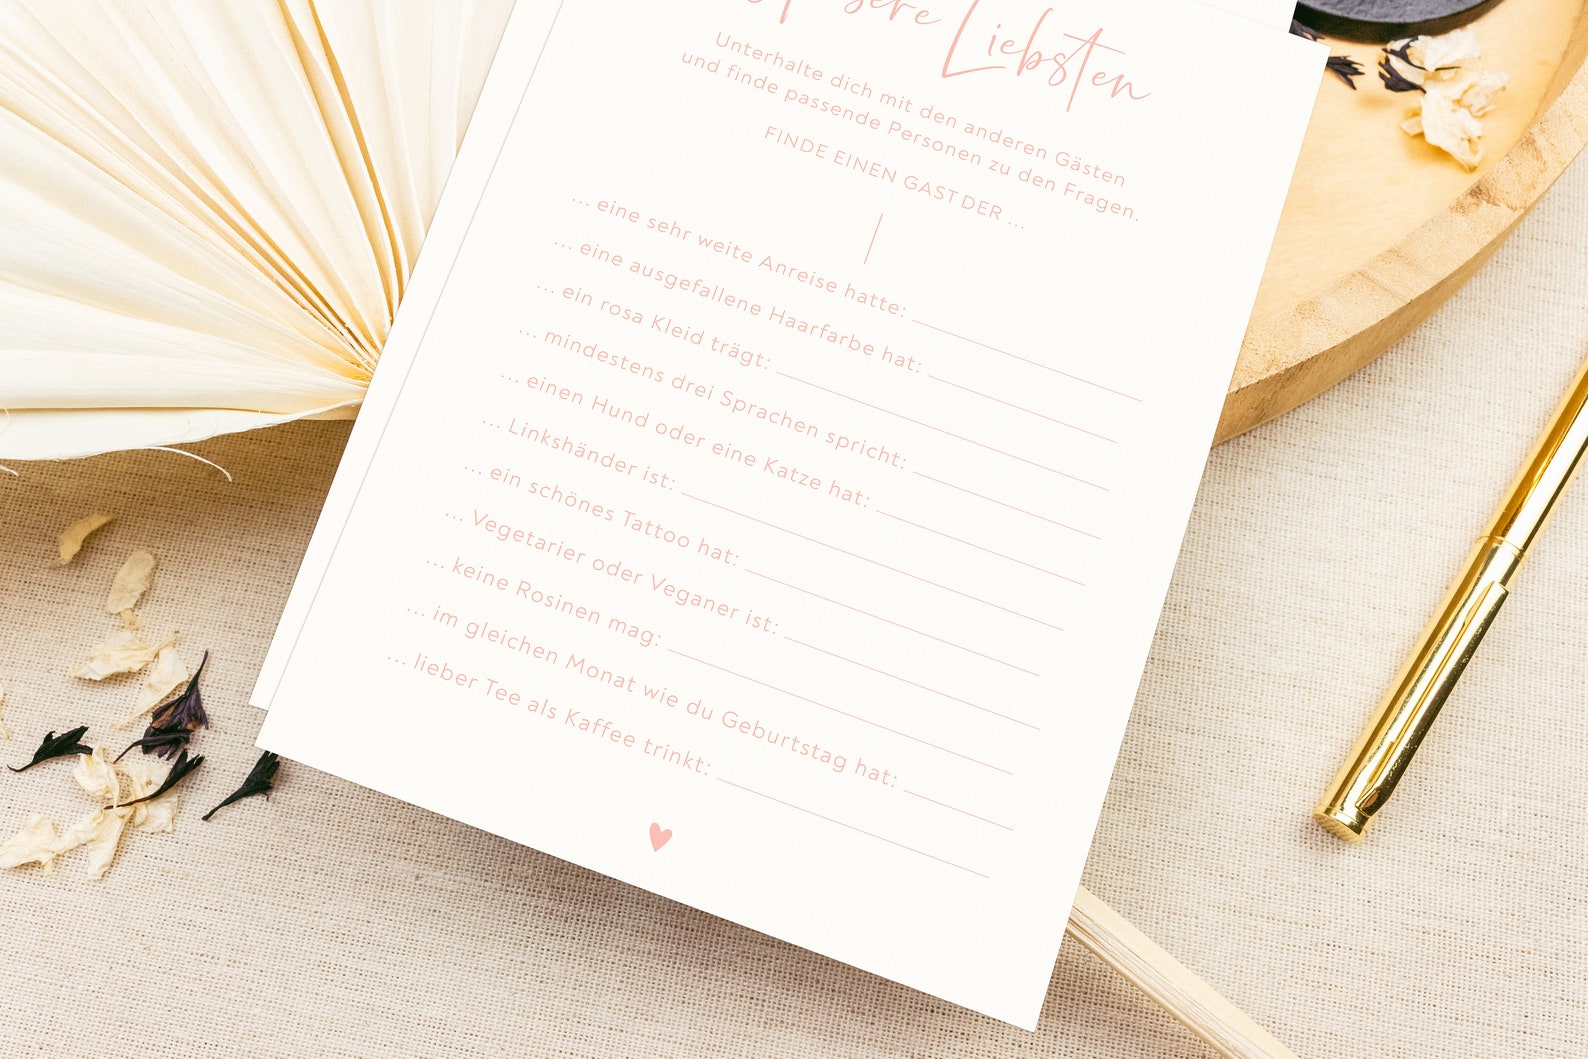 Unsere Liebsten
Unterhalte dich mit den anderen Gästen
und finde passende Personen zu den Fragen.
FINDE EINEN GAST DER ...
... eine sehr weite Anreise hatte:
... eine ausgefallene Haarfarbe hat:
... ein rosa Kleid trägt:
... mindestens drei Sprachen spricht:
... einen Hund oder eine Katze hat:
... Linkshänder ist:
... ein schönes Tattoo hat:
... Vegetarier oder Veganer ist:
... keine Rosinen mag:
... im gleichen Monat wie du Geburtstag hat:
... lieber Tee als Kaffee trinkt: